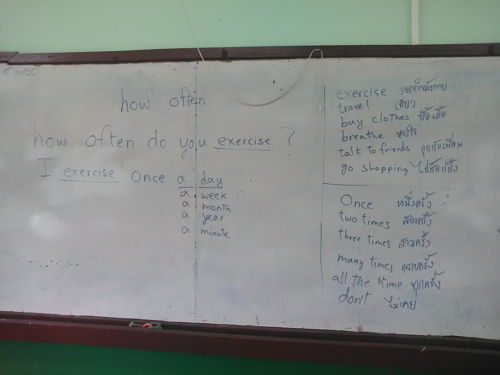 how often
how often do you exercise ?
I exercise once a day
a week
a month
a year
a minute
exercise ออกกำลังกาย
travel เที่ยว
buy clothes ซื้อเสื้อ
breathe หายใจ
talk To friends คุยกับเพื่อน
go shopping ไปช้อปปิ้ง
Once หนึ่งครั้ง
two times สองครั้ง
three times สามครั้ง
many times หลายครั้ง
all the time ทุกครั้ง
don't ไม่เคย